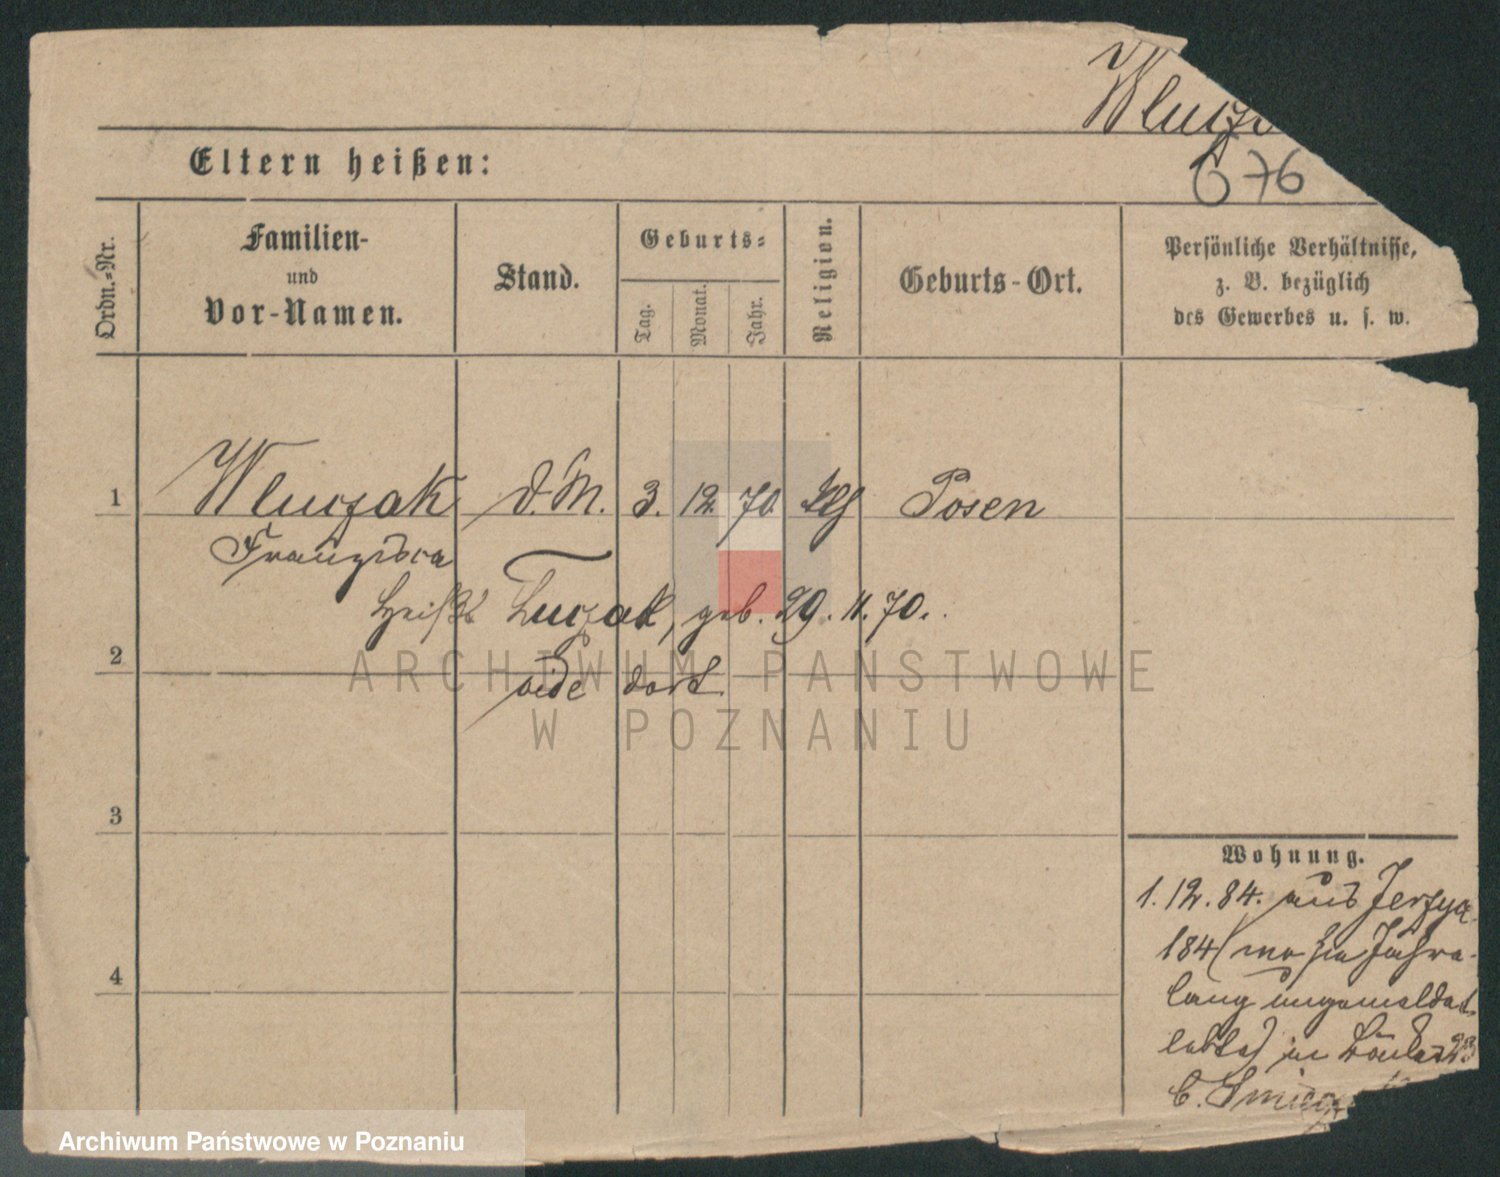 Wluczak
676
Eltern heißen:
Ordn.-Nr.
Familien-
und
Vor-Namen.
Stand.
Geburts-
Tag.
Monat.
Jahr.
Religion.
Geburts-Ort.
Persönliche Verhältnisse,
z. B. bezüglich
des Gewerbes u. s. w.
1 Wluczak D.M. 3. 12. 70. Posen
Franziska
heißt Luczak, geb. 29. 11. 70.
2
vide dort
3
4
Wohnung.
1. 12. 84. aus Jerzyce
184 (wo sie Jahre-
lang ungemeldet
lebte) in
b.
ARCHIWUM PAŃSTWOWE
W POZNANIU
Archiwum Państwowe w Poznaniu